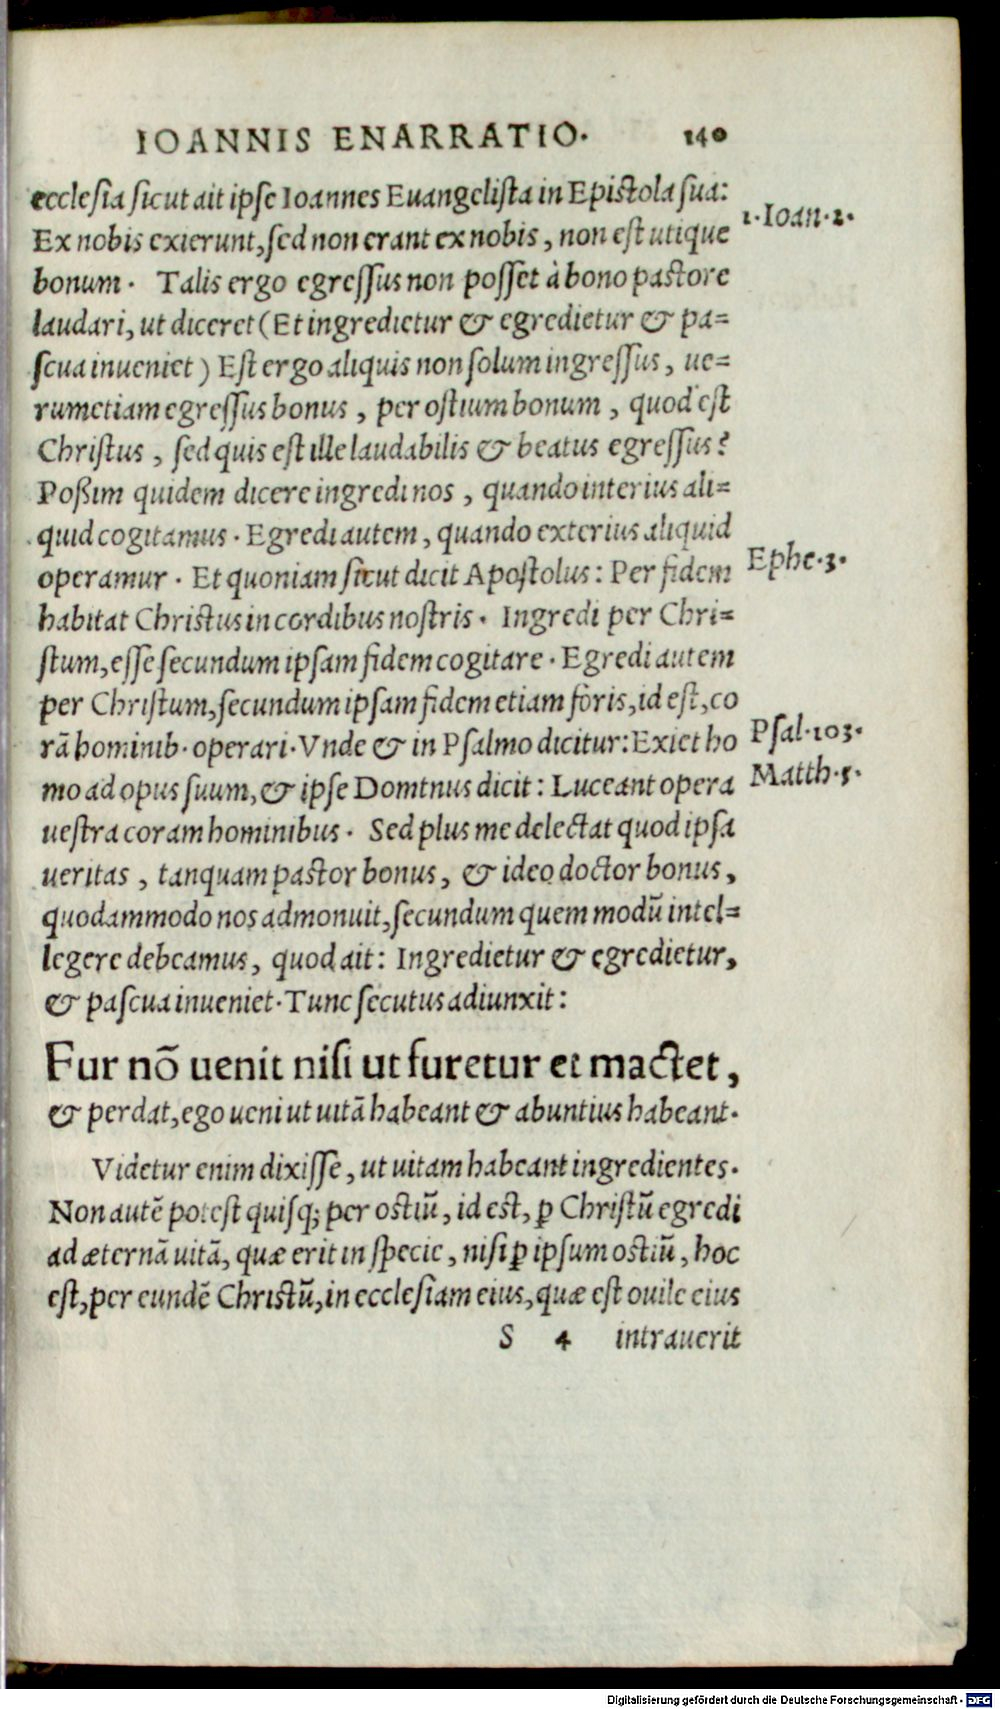 IOANNIS ENARRATIO. 140
ecclesia sicut ait ipse Ioannes Euangelista in Epistola sua:
1. Ioan. 2.
Ex nobis exierunt, sed non erant ex nobis, non est utique
bonum. Talis ergo egressus non posset à bono pastore
laudari, ut diceret (Et ingredietur & egredietur & pa=
scua inueniet) Est ergo aliquis non solum ingressus, ue=
rumetiam egressus bonus, per ostium bonum, quod est
Christus, sed quis est ille laudabilis & beatus egressus?
Poßim quidem dicere ingredi nos, quando interius ali=
quid cogitamus. Egredi autem, quando exterius aliquid
operamur. Et quoniam sicut dicit Apostolus: Per fidem
Ephe. 3.
habitat Christus in cordibus nostris. Ingredi per Chri=
stum, esse secundum ipsam fidem cogitare. Egredi autem
per Christum, secundum ipsam fidem etiam foris, id est, co
rā hominib. operari. Vnde & in Psalmo dicitur: Exiet ho
Psal. 103.
mo ad opus suum, & ipse Domtnus dicit: Luceant opera
Matth. 5.
uestra coram hominibus. Sed plus me delectat quod ipsa
ueritas, tanquam pastor bonus, & ideo doctor bonus,
quodammodo nos admonuit, secundum quem modū intel=
legere debeamus, quod ait: Ingredietur & egredietur,
& pascua inueniet. Tunc secutus adiunxit:
Fur nō uenit nisi ut furetur et mactet,
& perdat, ego ueni ut uitā habeant & abuntius habeant.
Videtur enim dixisse, ut uitam habeant ingredientes.
Non autē potest quisq; per ostiū, id est, ꝑ Christū egredi
ad æternā uitā, quæ erit in specie, nisi ꝑ ipsum ostiū, hoc
est, per eundē Christū, in ecclesiam eius, quæ est ouile eius
S 4 intrauerit
Digitalisierung gefördert durch die Deutsche Forschungsgemeinschaft - DFG